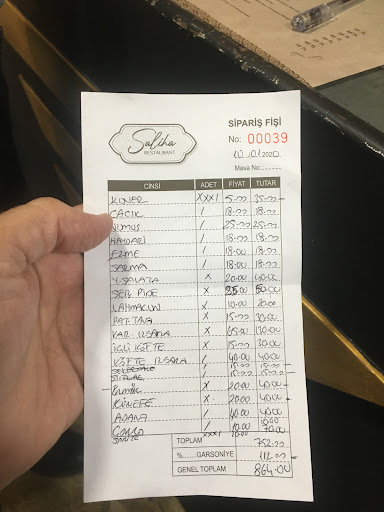 Saliha
RESTAURANT
SİPARİŞ FİŞİ
No: 00039
Masa No:
CİNSİ ADET FİYAT TUTAR
KUVER XXX1 5.00 35.00
CACIK / 18.00 18.00
HUMUS / 25.00 25.00
HAYDARİ / 18.00 18.00
EZME / 18.00 18.00
SARMA / 18.00 18.00
Y. SALATA X 20.00 40.00
SEB. PİDE X 25.00 50.00
LAHMACUN / 10.00
PAT. TAVA X 15.00 30.00
KAR. IZGARA X 65.00 130.00
İÇLİ KÖFTE X 15.00 30.00
KÖFTE IZGARA / 40.00 40.00
X 20.00 40.00
KÜNEFE X 20.00 40.00
ADANA / 40.00 40.00
XXX1 10.00 70.00
TOPLAM 752.00
%......GARSONİYE 112.00
GENEL TOPLAM 864.00